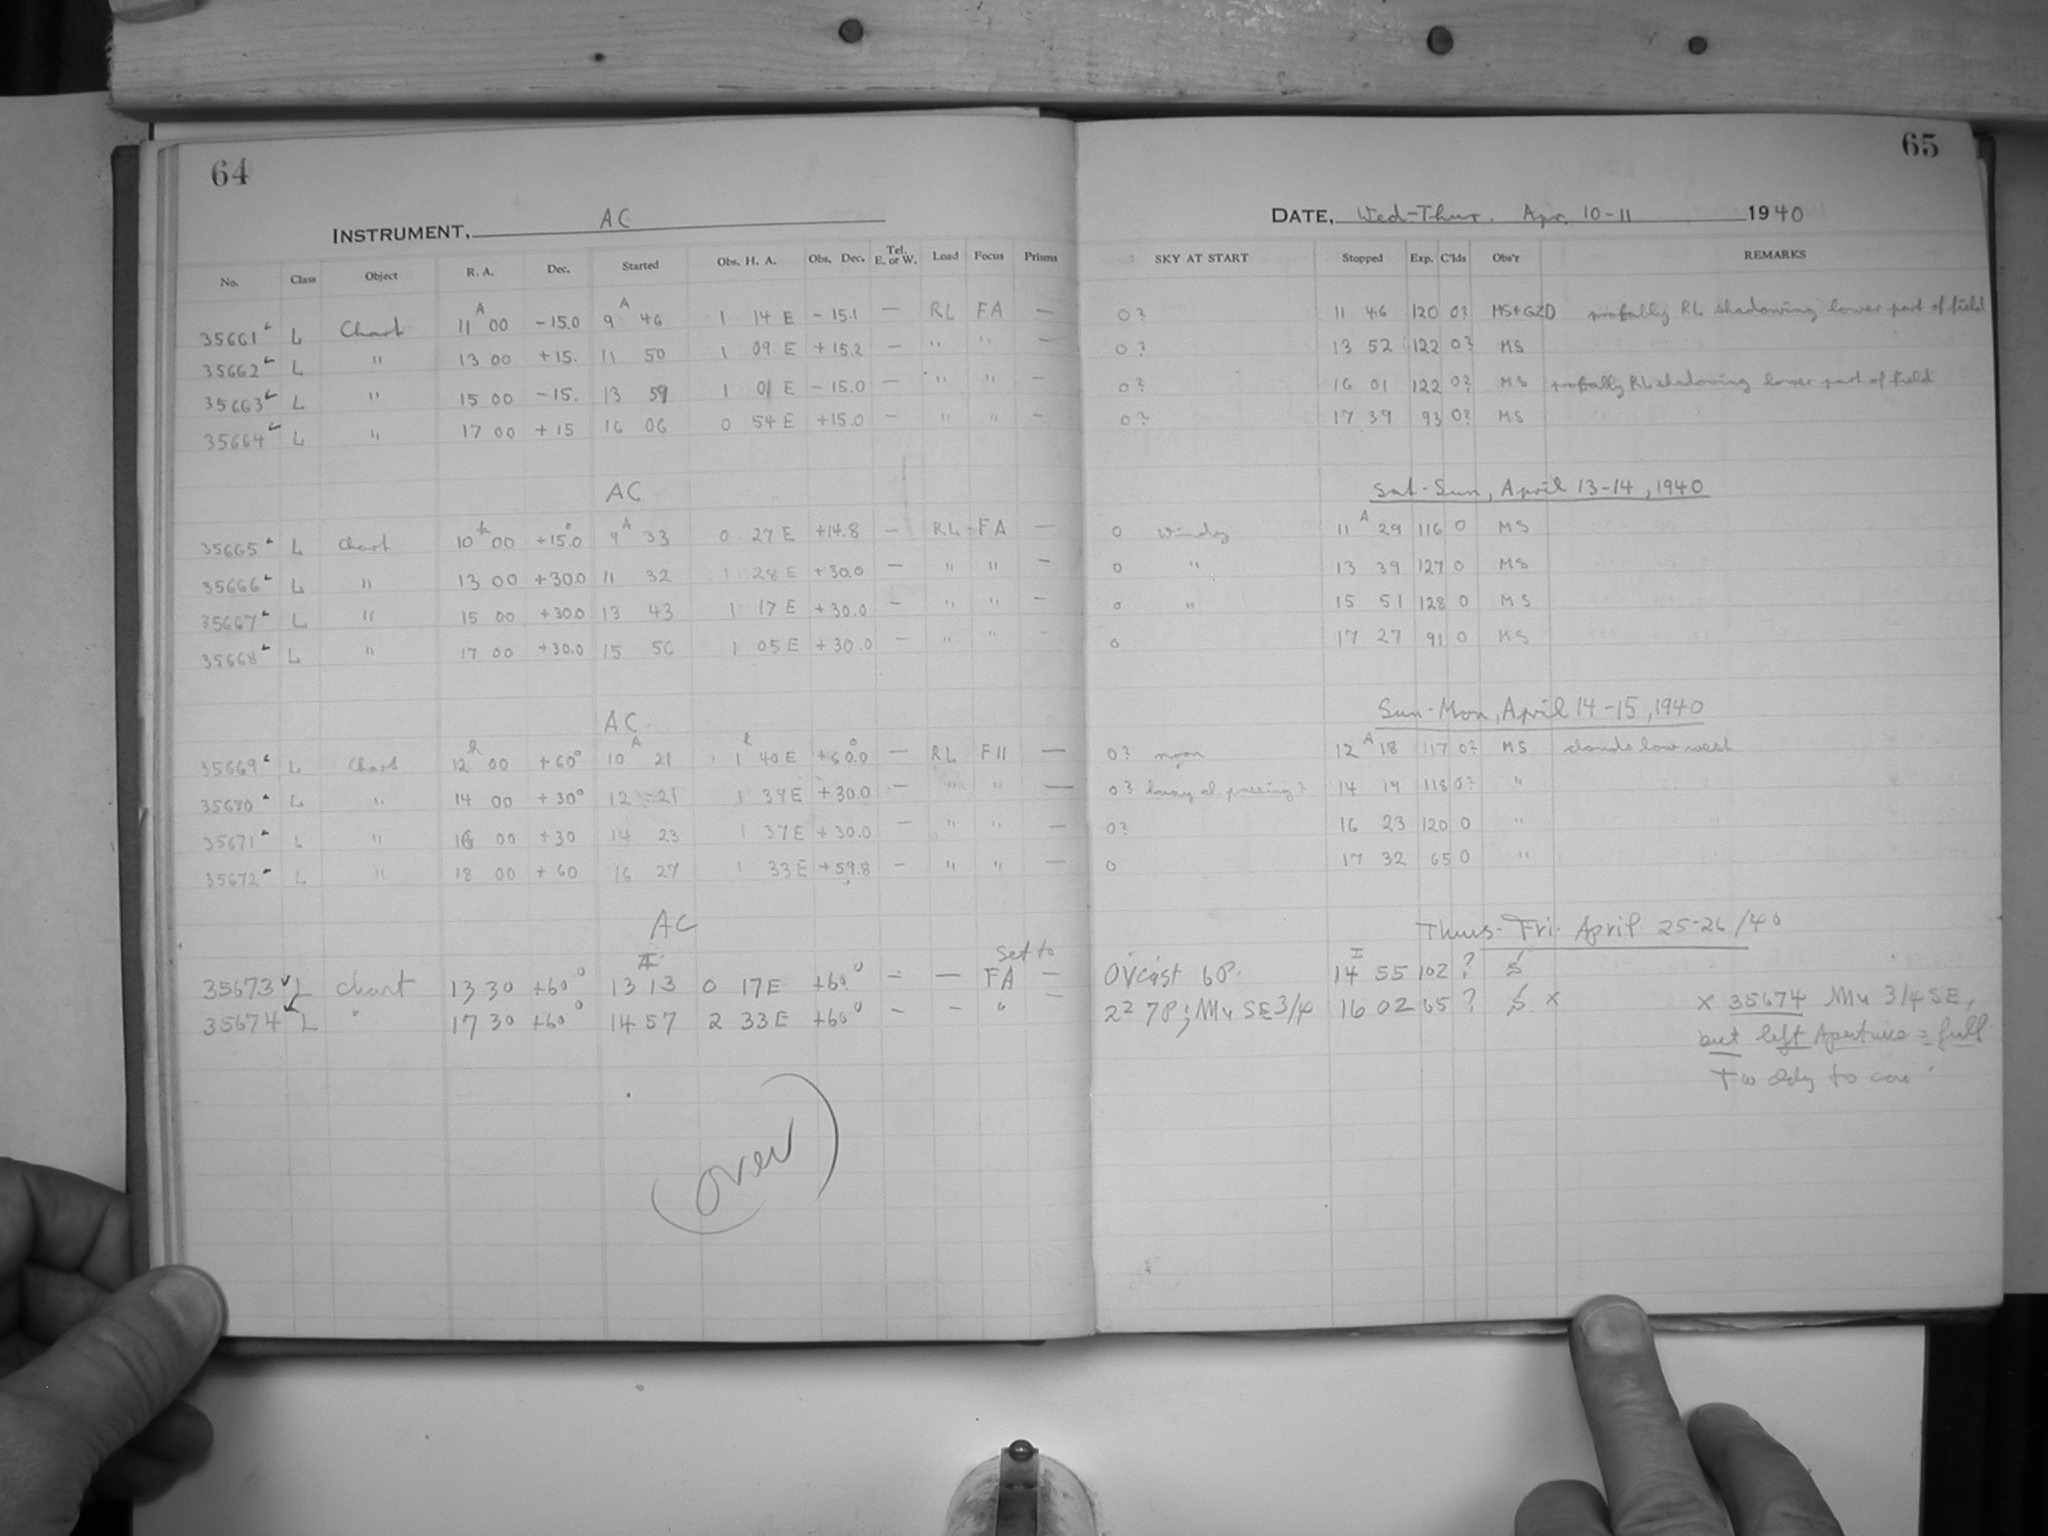 64
INSTRUMENT, AC
No. Class Object R. A. Dec. Started Obs. H. A. Obs. Dec. Tel. E. or W. Load Focus Prisms
35661 L Chart 11 00 -15.0 9 46 1 14 E -15.1 — RL FA —
35662 L " 13 00 +15. 11 50 1 09 E +15.2 — " " —
35663 L " 15 00 -15. 13 59 1 01 E -15.0 — " " —
35664 L " 17 00 +15 16 06 0 54 E +15.0 — " " —
AC
35665 L Chart 10h 00 +15.0 9 33 0 27 E +14.8 — RL FA —
35666 L " 13 00 +30.0 11 32 1 28 E +30.0 — " " —
35667 L " 15 00 +30.0 13 43 1 17 E +30.0 — " " —
35668 L " 17 00 +30.0 15 56 1 05 E +30.0 — " " —
AC
35669 L Chart 12h 00 +60° 10 21 1h 40 E +60.0 — RL F11 —
35670 L " 14 00 +30° 12 21 1 39 E +30.0 — " " —
35671 L " 16 00 +30 14 23 1 37 E +30.0 — " " —
35672 L " 18 00 +60 16 27 1 33 E +59.8 — " " —
AC
set to
35673 L Chart 13 30 +60° 13 13 0 17 E +60° — — FA —
35674 L " 17 30 +60° 14 57 2 33 E +60° — — " —
(over)
65
DATE, Wed-Thur. Apr. 10-11 1940
SKY AT START Stopped Exp. C'lds Obs'r REMARKS
0? 11 46 120 0? MS+GZD probably RL shadowing lower part of field
0? 13 52 122 0? MS
0? 16 01 122 0? MS probably RL shadowing lower part of field
0? 17 39 93 0? MS
Sat-Sun, April 13-14, 1940
0 windy 11 29 116 0 MS
0 " 13 39 127 0 MS
0 " 15 51 128 0 MS
0 17 27 91 0 MS
Sun-Mon, April 14-15, 1940
0? moon 12 18 117 0? MS clouds low west
0? passing? 14 19 118 0? "
0? 16 23 120 0 "
0 17 32 65 0 "
Thurs-Fri. April 25-26/40
Ovcast 6P. 14 55 102 ? S
2² 7P; Mu SE 3/4 16 02 65 ? S x x 35674 Mu 3/4 SE,
but left Aperture = full